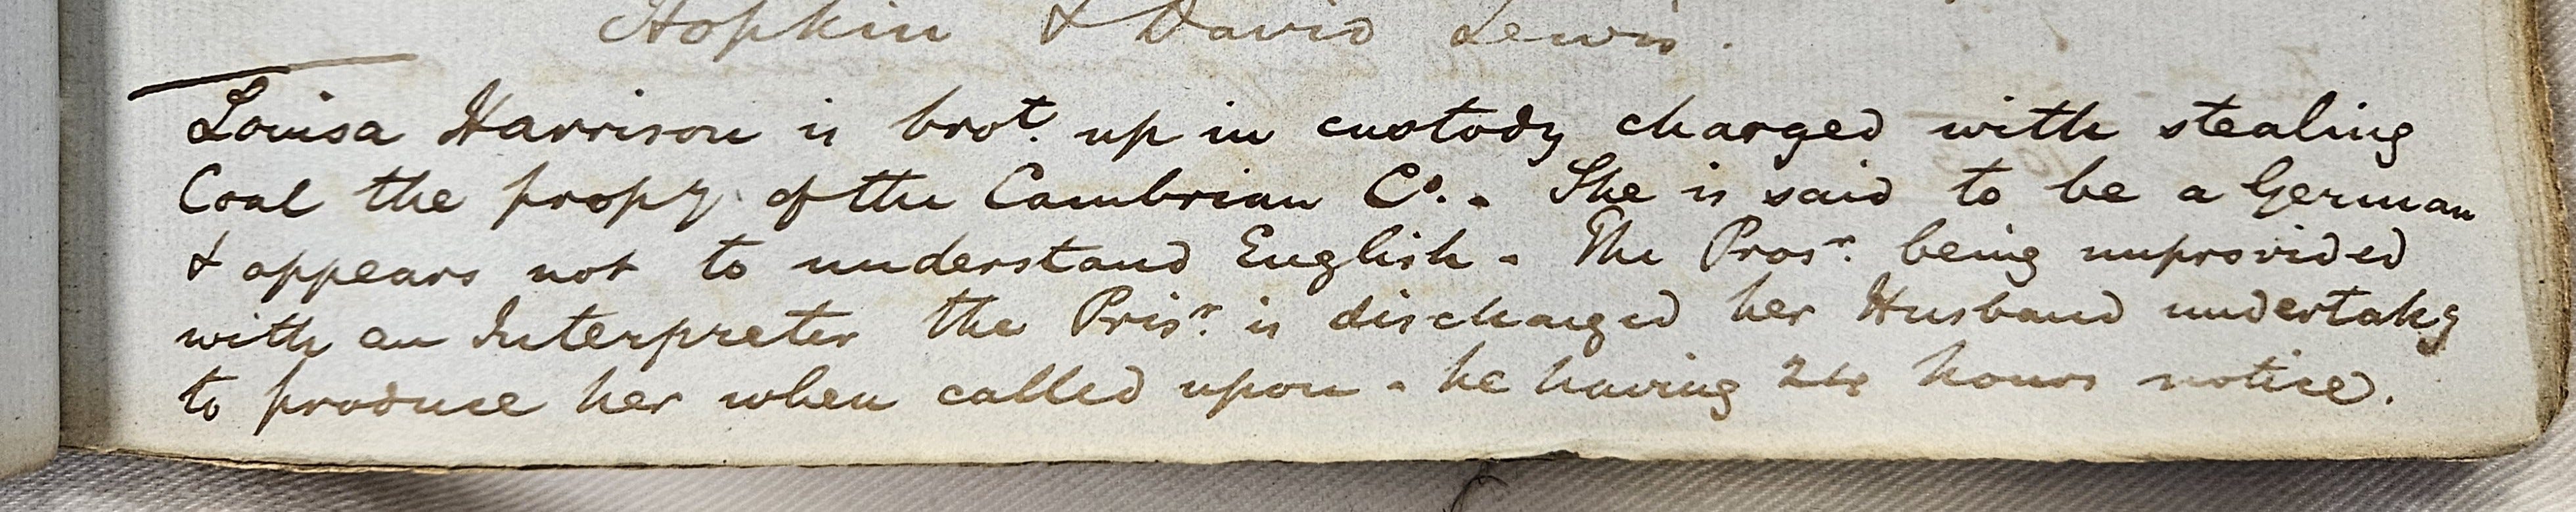 Hopkin & David Lewis.
Louisa Harrison is brot. up in custody charged with stealing
Coal the propy. of the Cambrian Co. - She is said to be a German
& appears not to understand English - The Prosr. being unprovided
with an Interpreter the Prisr. is discharged her Husband undertakg
to produce her when called upon - he having 24 hours notice.